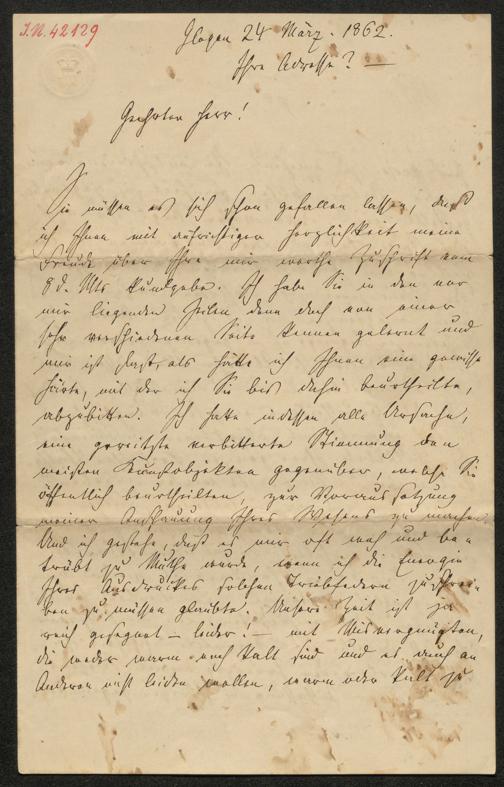 I.N. 42129
Glogau 24 März. 1862.
Ihre Adresse? —
Geehrter Herr!
Sie müssen es sich schon gefallen lassen, daß
ich Ihnen mit aufrichtiger Herzlichkeit meine
Freude über Ihre mir werthe Zuschrift vom
8 d. Mts kundgebe. Ich habe Sie in den vor
mir liegenden Zeilen denn doch von einer
sehr verschiedenen Seite kennen gelernt und
mir ist fast, als hätte ich Ihnen eine gewisse
Härte, mit der ich Sie bis dahin beurtheilte,
abzubitten. Ich hatte indessen alle Ursache,
eine gereitzte verbitterte Stimmung den
meisten Kunstobjekten gegenüber, welche Sie
öffentlich beurtheilten, zur Voraussetzung
meiner Anschauung Ihres Wesens zu machen.
Und ich gestehe, daß es mir oft weh und be=
trübt zu Muthe wurde, wenn ich die Energie
Ihres Ausdruckes solchen Triebfedern zuschrei=
ben zu müssen glaubte. Unsere Zeit ist ja
reich gesegnet – leider! – mit Misvergnügten,
die weder warm noch kalt sind und es auch an
Anderen nicht leiden wollen, warm oder kalt zu